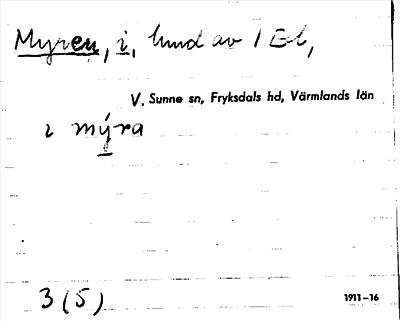 Myren, i, lund av 1 Eb,
V. Sunne sn, Fryksdals hd, Värmlands län
i mýra
3 (5)
1911–16